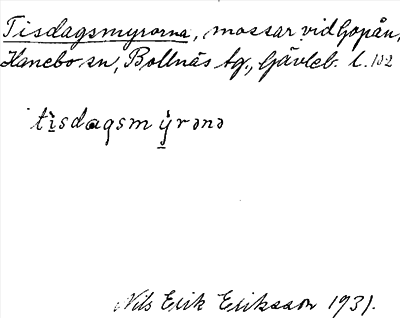 Tisdagsmyrorna, mossar vid Gopån,
Hanebo sn, Bollnäs tg., Gävleb. l. 102
tìsdagsm ỳrənə
Nils Erik Eriksson 1931.